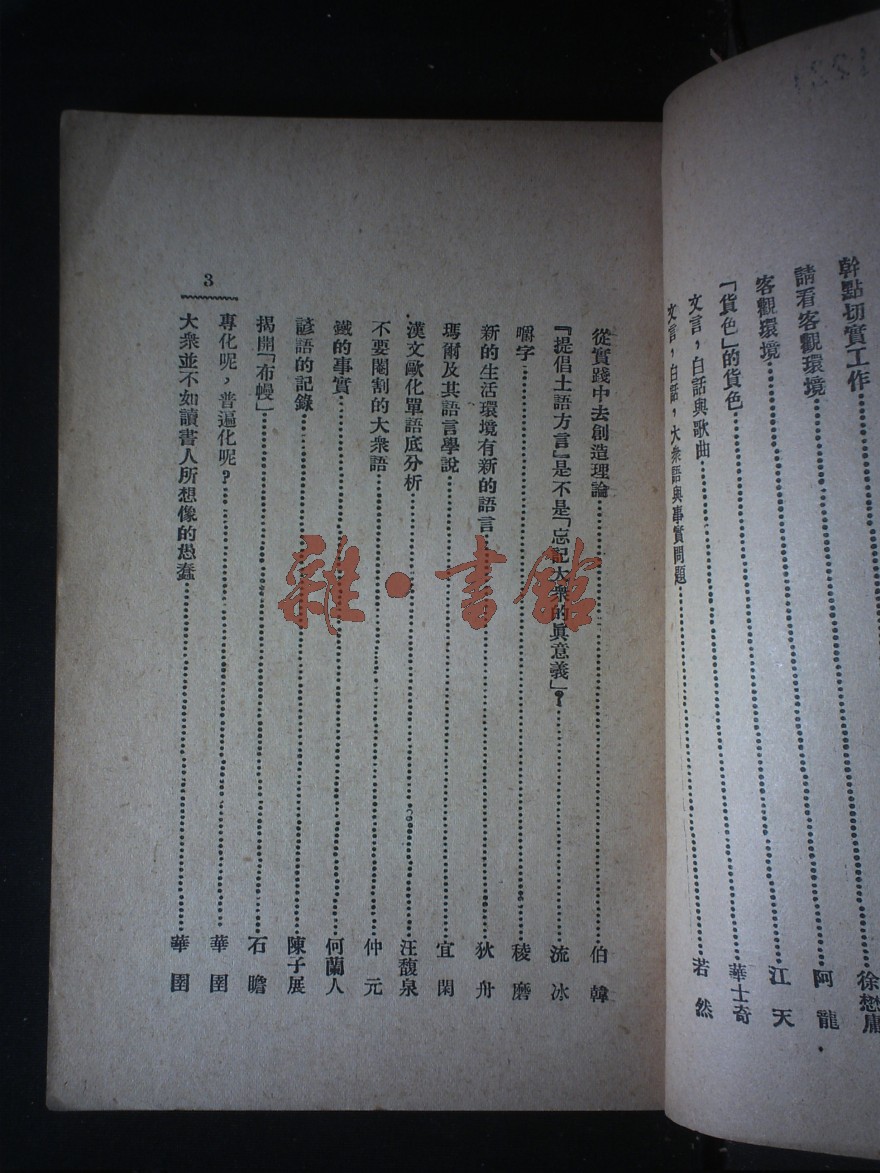 幹點切實工作 徐懋庸
請看客觀環境 阿龍
客觀環境 江天
「貨色」的貨色 華士奇
文言，白話與歌曲
文言，白話，大衆語與事實問題 若然
從實踐中去創造理論 伯韓
『提倡土語方言』是不是「忘記大衆的眞意義」？ 流冰
嚼字 稜磨
新的生活環境有新的語言 狄舟
瑪爾及其語言學說 宜閑
漢文歐化單語底分析 汪馥泉
不要閹割的大衆語 仲元
鐵的事實 何蘭人
諺語的記錄 陳子展
揭開「布幔」 石瞻
專化呢，普遍化呢？ 華圉
大衆並不如讀書人所想像的愚蠢 華圉
3
雜·書館